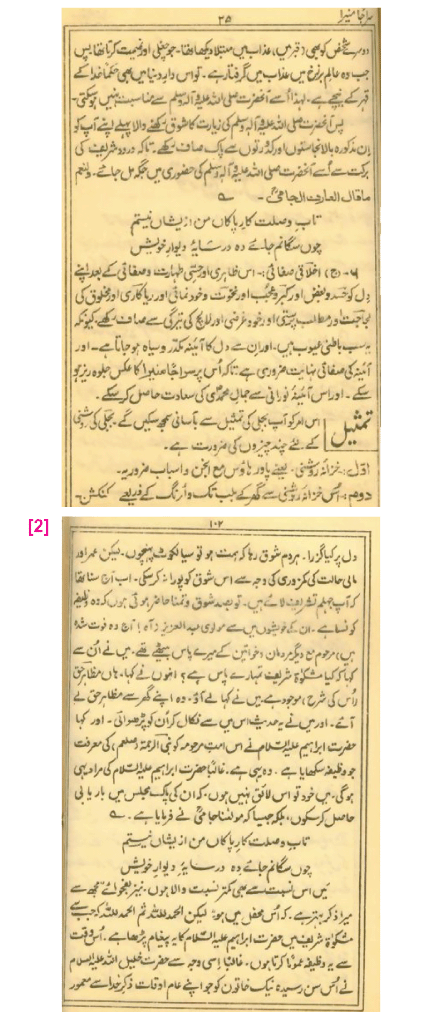 سراجاً منیرا
۲۵
دوسرے شخص کو بھی (قبر میں) عذاب میں مبتلا دیکھا تھا۔ جو چغلی اور غیبت کرتا تھا پس
جب وہ عالم برزخ میں عذاب میں گرفتار ہے۔ تو اس دار دنیا میں بھی حکماً خدا کے
قہر کے نیچے ہے۔ لہٰذا اُسے آنحضرت صلی اللہ علیہ وآلہ وسلم سے مناسبت نہیں ہوسکتی۔
پس آنحضرت صلی اللہ علیہ وآلہ وسلم کی زیارت کا شوق رکھنے والا پہلے اپنے آپ کو
اِن مذکورہ بالا نجاستوں اور کدورتوں سے پاک صاف رکھے۔ تاکہ درود شریف کی
برکت سے اُسے آنحضرت صلی اللہ علیہ وآلہ وسلم کی حضوری میں جگہ مل جائے۔ ولنعم
ماقال العارف الجامیؒ۔
تابِ وصلت کارِ پاکاں من ازیشاں نیستم
چوں سگانم جائے دہ در سایۂ دیوارِ خویش
۶۔ (ج) اخلاقی صفائی:۔ اس ظاہری اور حِسّی طہارت و صفائی کے بعد اپنے
دِل کو حسد و بغض اور کبر و عُجب اور نخوت و خود نمائی اور ریاکاری اور مخلوق کی
لجاجت اور مطلب پرستی اور خود غرضی اور لالچ کی تیرگی سے صاف رکھے۔ کیونکہ
یہ سب باطنی عیوب ہیں۔ اور ان سے دل کا آئینہ مکدّر و سیاہ ہو جاتا ہے۔ اور
آئینہ کی صفائی نہایت ضروری ہے۔ تاکہ اُس پر سراجاً منیرا کا عکس جلوہ ریز ہو
سکے۔ اور اس آئینۂ نورانی سے جمالِ محمدیؐ کی سعادت حاصل کر سکے۔
تمثیل
اس امر کو آپ بجلی کی تمثیل سے بآسانی سمجھ سکیں گے۔ بجلی کی روشنی
کے لئے چند چیزوں کی ضرورت ہے۔
اوّل:۔ خزانۂ روشنی۔ یعنے پاور ہاؤس مع انجن و اسباب ضروریہ۔
دوم:۔ اُس خزانۂ روشنی سے گھر کے بلب تک وائرنگ کے ذریعے کنکشن۔
[2]
۱۰۲
دل پر کیا گزرا۔ ہر دم شوق رہا کہ ہمت ہو تو سیالکوٹ پہنچوں۔ لیکن عمر اور
مالی حالت کی کمزوری کی وجہ سے اس شوق کو پورا نہ کرسکی۔ اب آج سنا تھا
کہ آپ جہلم تشریف لائے ہیں۔ تو بصد شوق و تمنا حاضر ہوئی ہوں کہ وہ وظیفہ
کونسا ہے۔ ان کے خویشوں میں سے مولوی عبدالعزیز ذ (آہ! آج وہ فوت شدہ
ہیں) مرحوم مع دیگر مردمان و خواتین کے میرے پاس بیٹھے تھے۔ میں نے اُن سے
کہا کہ کیا مشکوٰۃ شریف تمہارے پاس ہے؟ انہوں نے کہا۔ ہاں مظاہر حق
(اُس کی شرح) موجود ہے۔ میں نے کہا لے آؤ۔ وہ اپنے گھر سے مظاہر حق لے
آئے۔ اور میں نے یہ حدیث اس میں سے نکال کر اُن کو پڑھوائی۔ اور کہا
حضرت ابراہیم علیہ السلام نے اس امت مرحومہ کو نبی الرحمۃ (صلعم) کی معرفت
جو وظیفہ سکھایا ہے۔ وہ یہی ہے۔ غالباً حضرت ابراہیم علیہ السلام کی مراد یہی
ہوگی۔ میں خود تو اس لائق نہیں ہوں۔ کہ ان کی پاک مجلس میں بار یابی
حاصل کر سکوں، بلکہ جیسا کہ مولٰنا جامیؒ نے فرمایا ہے۔
تابِ وصلت کارِ پاکاں من ازیشاں نیستم
چوں سگانم جائے دہ در سایۂ دیوارِ خویش
میں اس نسبت سے بھی کمتر نسبت والا ہوں۔ نیز بفحوائے مجھ سے
میرا ذکر بہتر ہے۔ کہ اُس محفل میں ہو۔ لیکن الحمد للہ ثم الحمد للہ کہ جب سے
مشکوٰۃ شریف میں حضرت ابراہیم علیہ السلام کا یہ پیغام پڑھا ہے۔ اُس وقت
سے یہ وظیفہ عموماً کرتا ہوں۔ غالباً اِسی وجہ سے حضرت خلیل اللہ علیہ السلام
نے اُس سن رسیدہ نیک خاتون کو جو اپنے عام اوقات ذکرِ خدا سے معمور